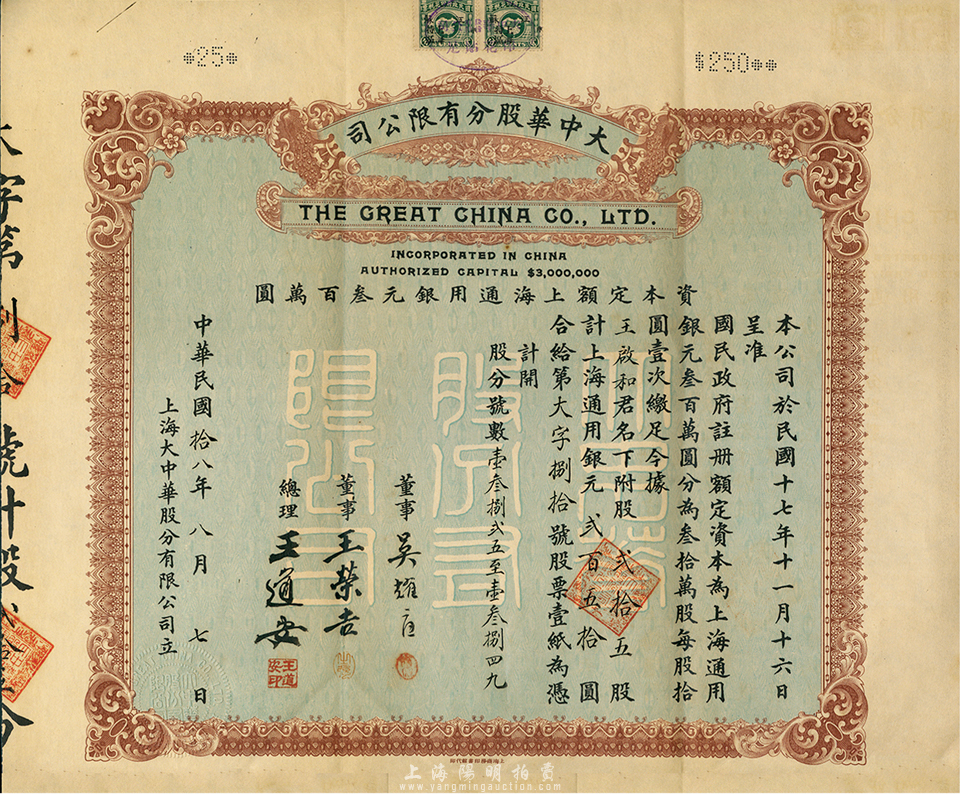 *25*
$250**
大中華股分有限公司
THE GREAT CHINA CO., LTD.
INCORPORATED IN CHINA
AUTHORIZED CAPITAL $3,000,000
資本定額上海通用銀元叁百萬圓
本公司於民國十七年十一月十六日
呈准
國民政府註册額定資本為上海通用
銀元叁百萬圓分為叁拾萬股每股拾
圓壹次繳足今據
王啟和君名下附股弍拾五股
計上海通用銀元弍百五拾圓
合給第大字捌拾號股票壹紙為憑
計開
股分號數壹叁捌弍五至壹叁捌四九
董事
董事 王榮吉
總理 王道安
王道安印
中華民國拾八年八月七日
上海大中華股分有限公司立
股分有
限公司
大字第捌拾號計股弍拾五分
上海陽明拍賣
www.yangmingauction.com